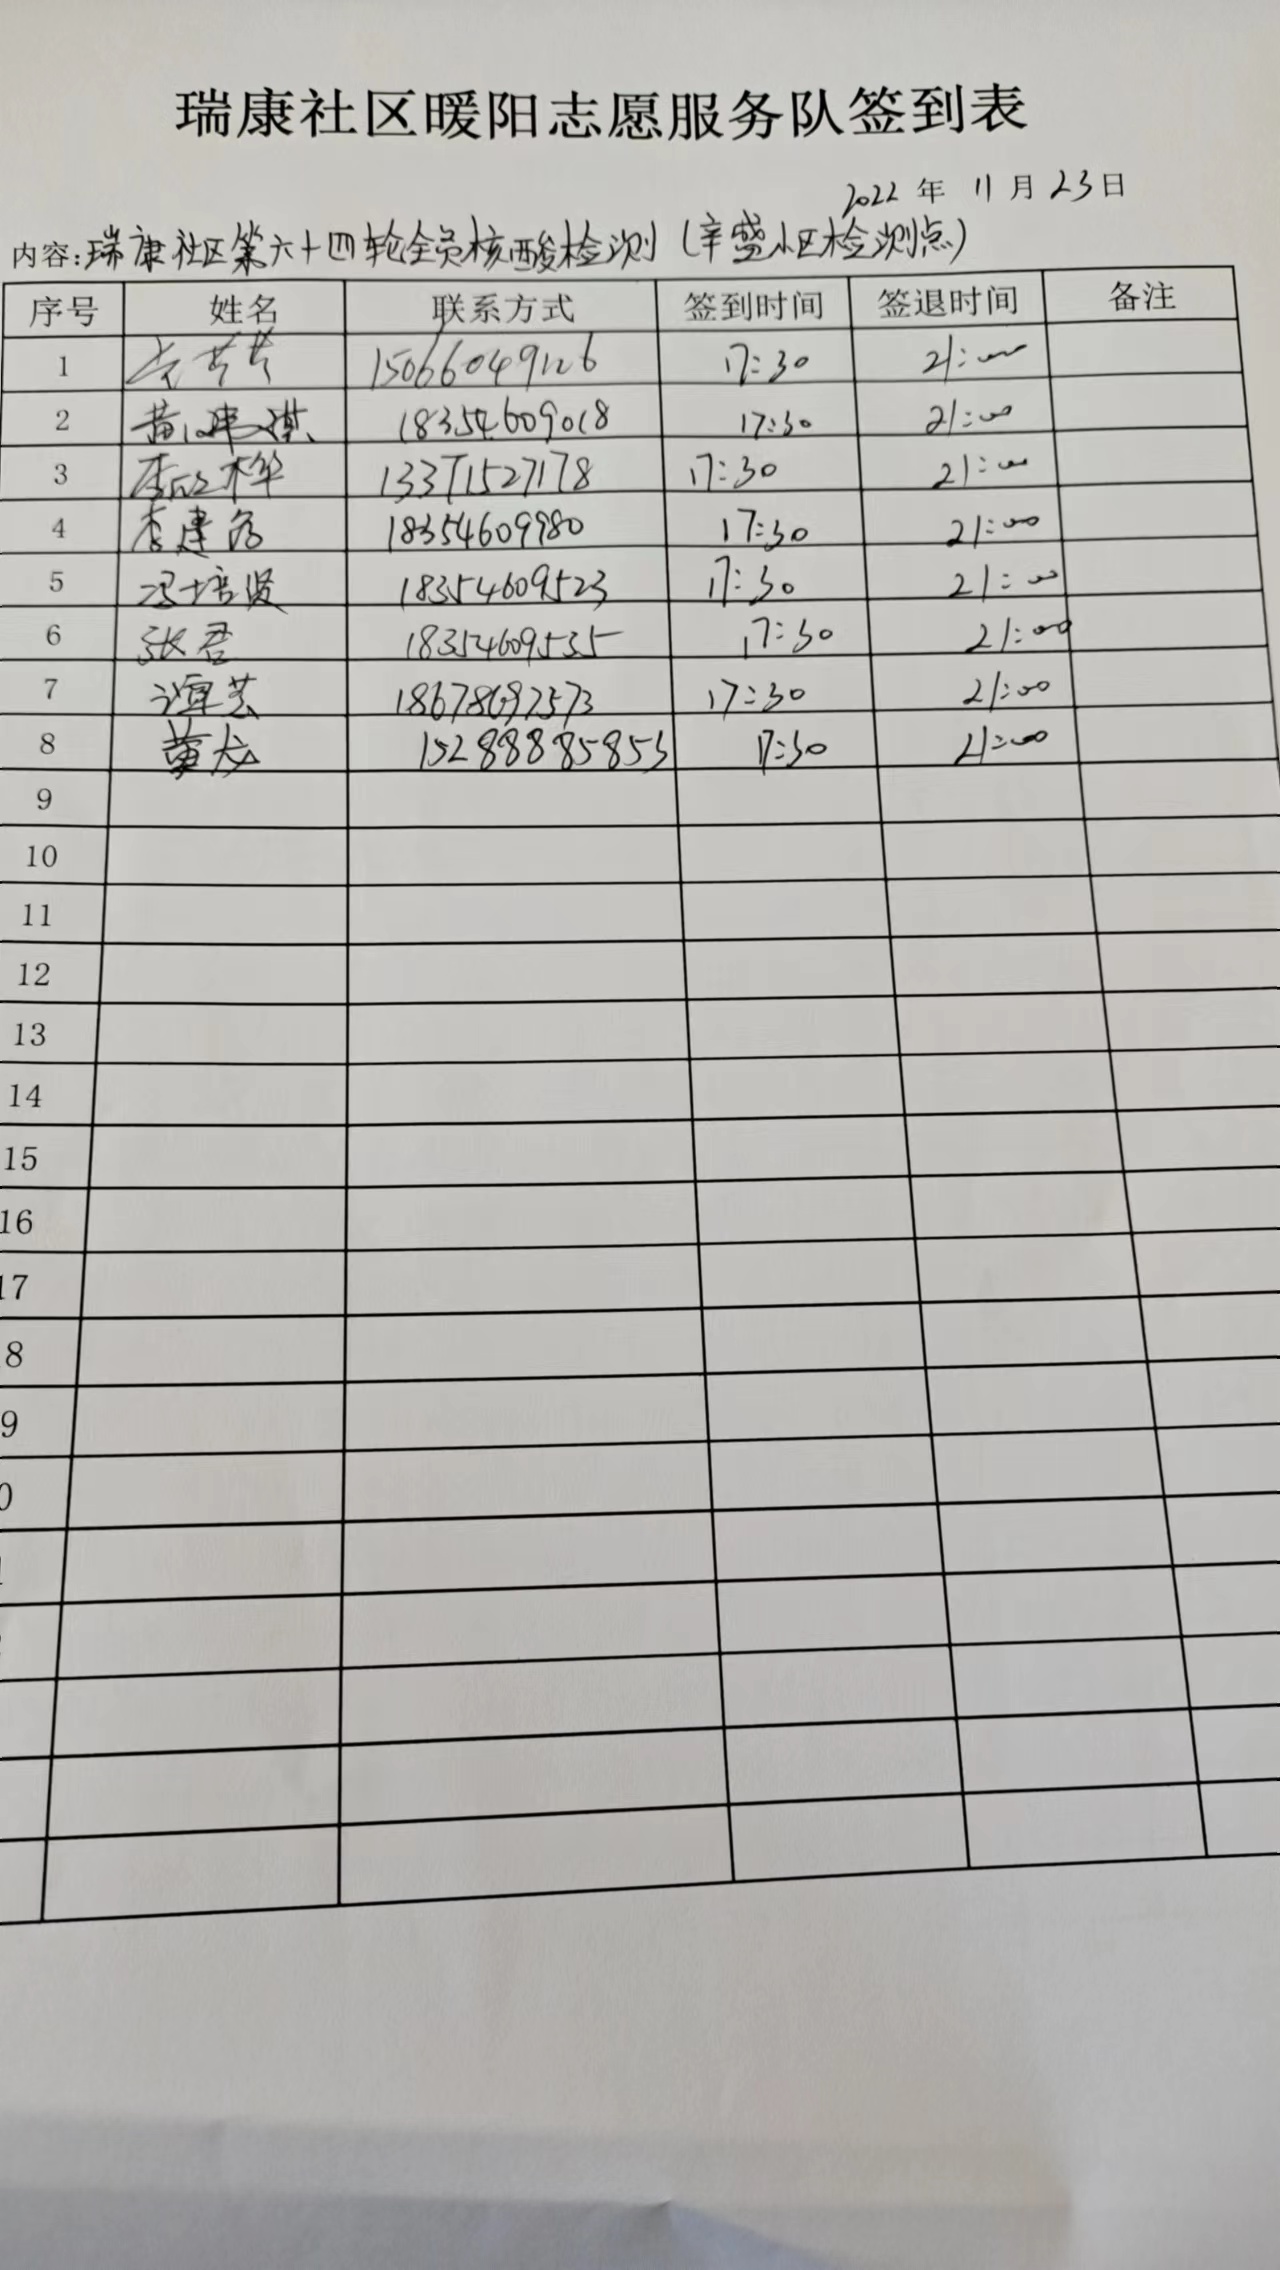 瑞康社区暖阳志愿服务队签到表
2022 年 11 月 23 日
内容:瑞康社区第六十四轮全员核酸检测(辛盛小区检测点)
序号 姓名 联系方式 签到时间 签退时间 备注
1 15066049126 17:30 21:00
2 18354609018 17:30 21:00
3 13371527178 17:30 21:00
4 李建 18354609980 17:30 21:00
5 冯培贤 18354609523 17:30 21:00
6 张君 18354609535 17:30 21:00
7 谭芸 18678692573 17:30 21:00
8 黄龙 15288885853 17:30 21:00
9
10
11
12
13
14
15
16
17
8
9
0